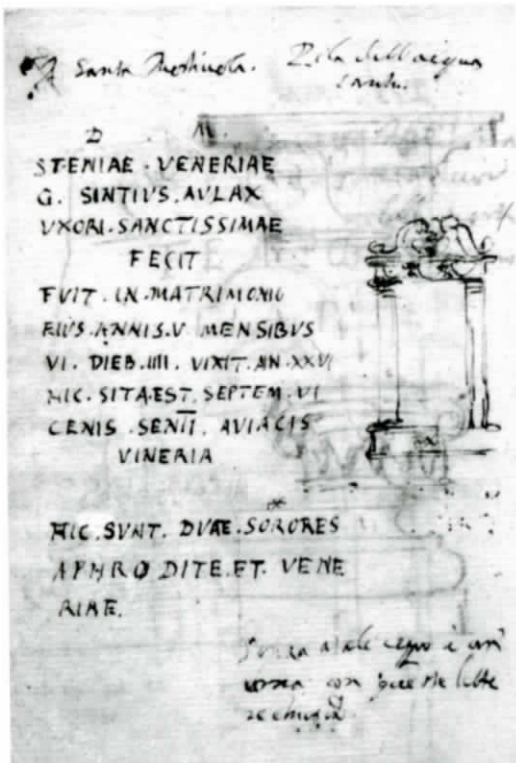 Santa Mostiuola. Pila dell'acqua
santa.
D M.
STENIAE · VENERIAE
G. SINTIVS. AVLAX
VXORI · SANCTISSIMAE
FECIT
FVIT · IN · MATRIMONIO
EIVS · ANNIS · V MENSIBUS
VI. DIEB. IIII. VIXIT. AN. XXVI
HIC. SITA.EST. SEPTEM. VI
CENIS. SENTI. AVIACIS
VINERIA
HIC. SVNT. DVAE. SORORES
APHRODITE. ET. VENE
RIAE.
con queste lette